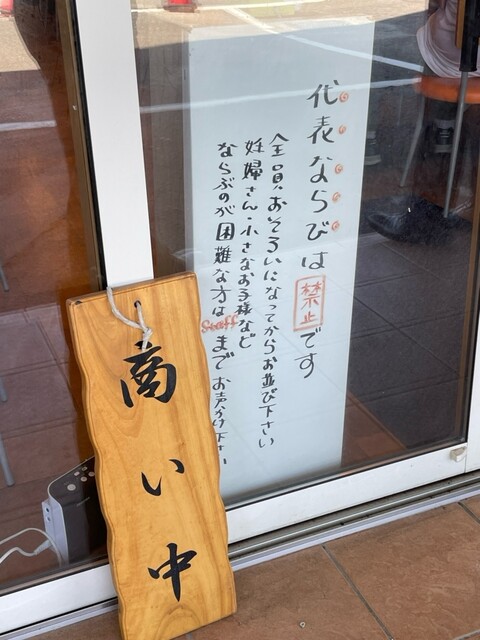 代表ならびは禁止です
全員、おそろいになってからお並び下さい
妊婦さん・小さなお子様など
ならぶのが困難な方はStaffまでお声かけ下さい
商い中